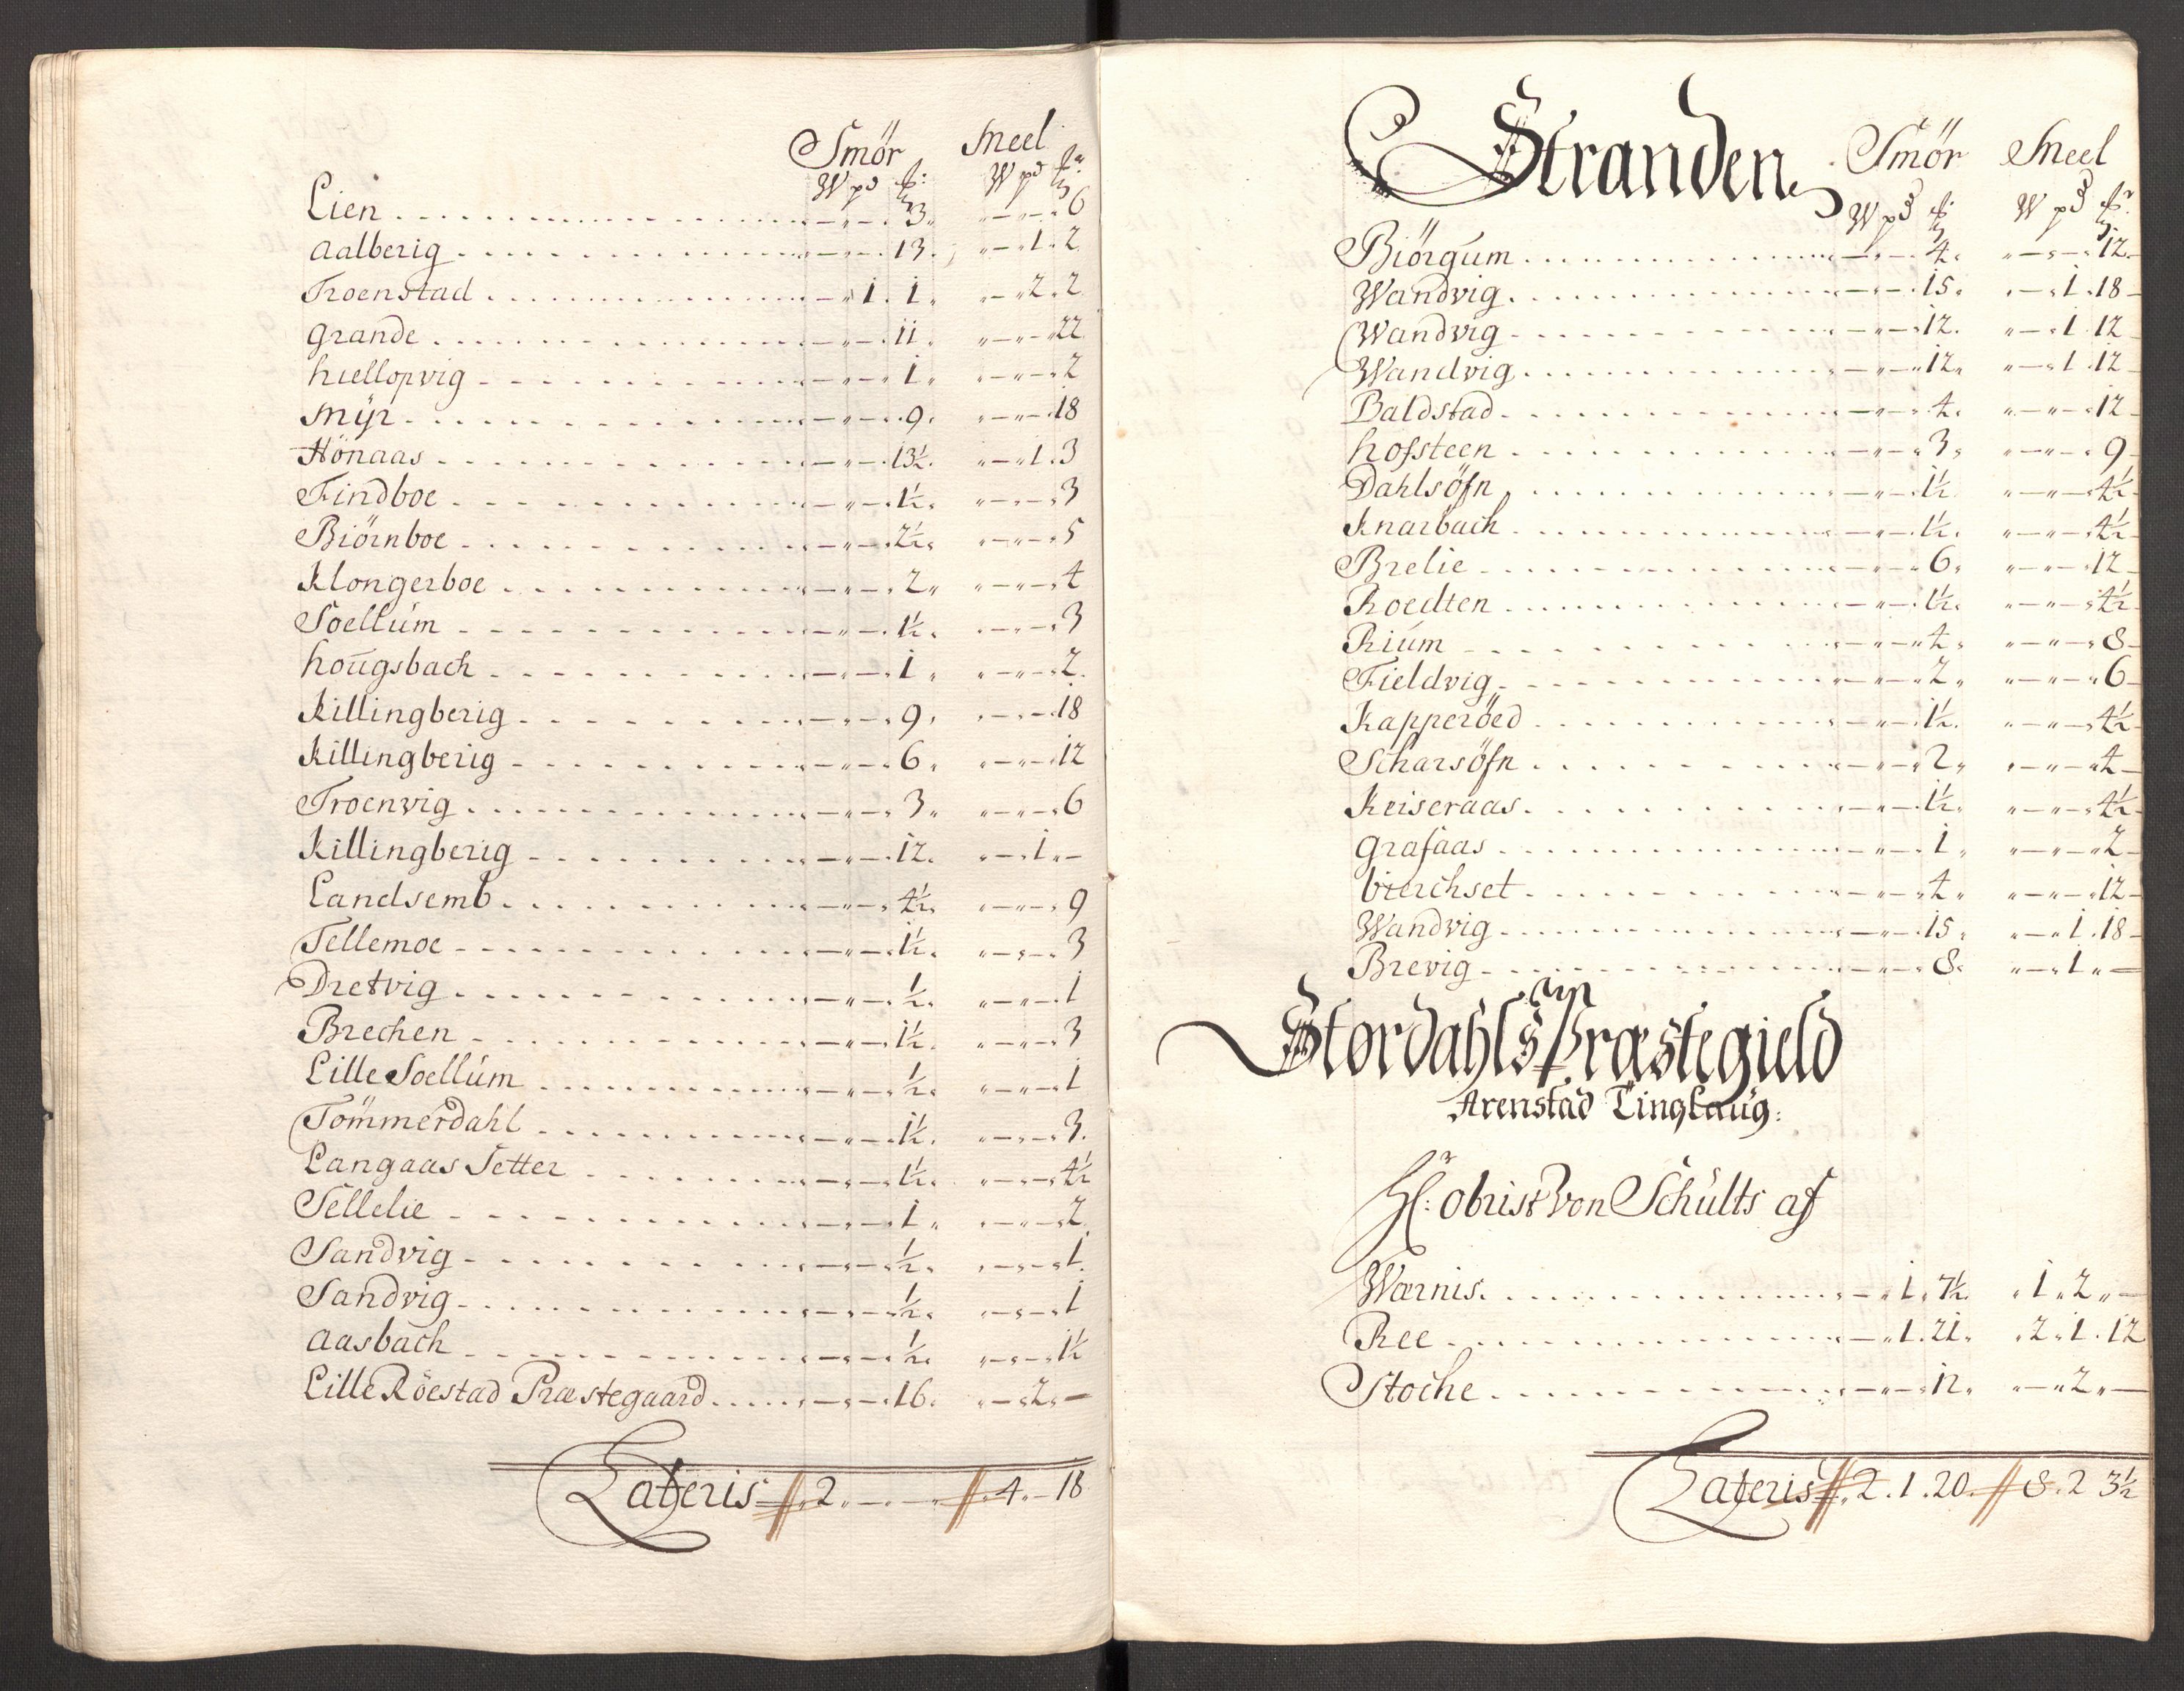 Smör Meel
W pd ℔: W pd ℔r
Lien . . . . . „ — „ — . 3 „ „ — „ — . 6
Aalberig . . . . . „ — „ — . 13 . „ — „ 1 . 2
Troenstad . . . . . „ — „ 1 . 1 „ „ — „ 2 . 2
Grande . . . . . „ — „ — . 11 . „ — „ — „ 22
hiellopvig . . . . . „ — „ — „ 1 „ „ — „ — „ 2
Myr . . . . . „ — „ — . 9 . „ — „ — . 18
Hönaas . . . . . „ — „ — . 13½ . „ — „ 1 . 3
Findboe . . . . . „ — „ — . 1½ . „ — „ — „ 3
Biörnboe . . . . . „ — „ — . 2½ . „ — „ — „ 5
Klongerboe . . . . . „ — „ — . 2 „ „ — „ — „ 4
Soellum . . . . . „ — „ — . 1½ . „ — „ — „ 3
hougsbach . . . . . „ — „ — . 1 „ „ — „ — „ 2
Killingberig . . . . . „ — „ — „ 9 . „ — „ — . 18
Killingberig . . . . . „ — „ — „ 6 „ „ — „ — „ 12
Troenvig . . . . . „ — „ — „ 3 „ „ — „ — „ 6
Killingberig . . . . . „ — „ — . 12 . „ — „ 1 „ —
Landsemb . . . . . „ — „ — „ 4½ . „ — „ — „ 9
Tellemoe . . . . . „ — „ — . 1½ . „ — „ — „ 3
Dretvig . . . . . „ — „ — . ½ . „ — „ — . 1
Brechen . . . . . „ — „ — . 1½ . „ — „ — „ 3
Lille Soellum . . . . . „ — „ — „ ½ . „ — „ — „ 1
Tömmerdahl . . . . . „ — „ — . 1½ . „ — „ — „ 3
Langaas Setter . . . . . „ — „ — . 1½ . „ — „ — „ 4½
Sellelie . . . . . „ — „ — „ 1 „ „ — „ — „ 2
Sandvig . . . . . „ — „ — „ ½ . „ — „ — „ 1
Sandvig . . . . . „ — „ — „ ½ . „ — „ — „ 1
Aasbach . . . . . „ — „ — „ ½ . „ — „ — „ 1½
Lille Röestad Præstegaard . . . . . „ — „ — . 16 . „ — „ 2 „ —
Lateris „ 2 „ — „ — „ „ 4 „ — 18
Stranden Smör Meel
W pd ℔: W pd ℔r
Biörgum . . . . . „ — „ — . 4 . „ — „ — „ 12
Wandvig . . . . . „ — „ — . 15 . „ — „ 1 . 18
Wandvig . . . . . „ — „ — „ 12 . „ — „ 1 . 12
Wandvig . . . . . „ — „ — „ 12 „ „ — „ 1 . 12
Baldstad . . . . . „ — „ — . 4 . „ — „ — „ 12
hofsteen . . . . . „ — „ — „ 3 „ „ — „ — „ 9
Dahlsöfn . . . . . „ — „ — . 1½ „ — „ — „ 4½
Knarbach . . . . . „ — „ — . 1½ . „ — „ — „ 4½
Brelie . . . . . „ — „ — „ 6 „ „ — „ — . 12
Roedten . . . . . „ — „ — „ 1½ . „ — „ — „ 4½
Rium . . . . . „ — „ — „ 4 „ „ — „ — „ 8
Fieldvig . . . . . „ — „ — „ 2 „ „ — „ — „ 6
Kapperöed . . . . . „ — „ — . 1½ . „ — „ — „ 4½
Scharsöfn . . . . . „ — „ — „ 2 „ „ — „ — „ 4
Keiseraas . . . . . „ — „ — . 1½ . „ — „ — „ 4½
Grafaas . . . . . „ — „ — . 1 „ „ — „ — „ 2
bierchset . . . . . „ — „ — „ 4 „ „ — „ — „ 12
Wandvig . . . . . „ — „ — . 15 „ „ — „ 1 . 18
Brevig . . . . . „ — „ — „ 8 . „ — „ 1 „ —
Stordahls Præstegield
Arenstad Tinglaug:
Hr: obrist Von Schults af
Wærnis . . . . . „ — „ 1 . 7½ . „ 1 „ 2 „ —
Ree . . . . . „ — „ 1 . 21 . „ 2 „ 1 . 12
Stoche . . . . . „ — „ — „ 12 „ „ — „ 2 „ —
Lateris „ 2 . 1 . 20 . 8 . 2 3½